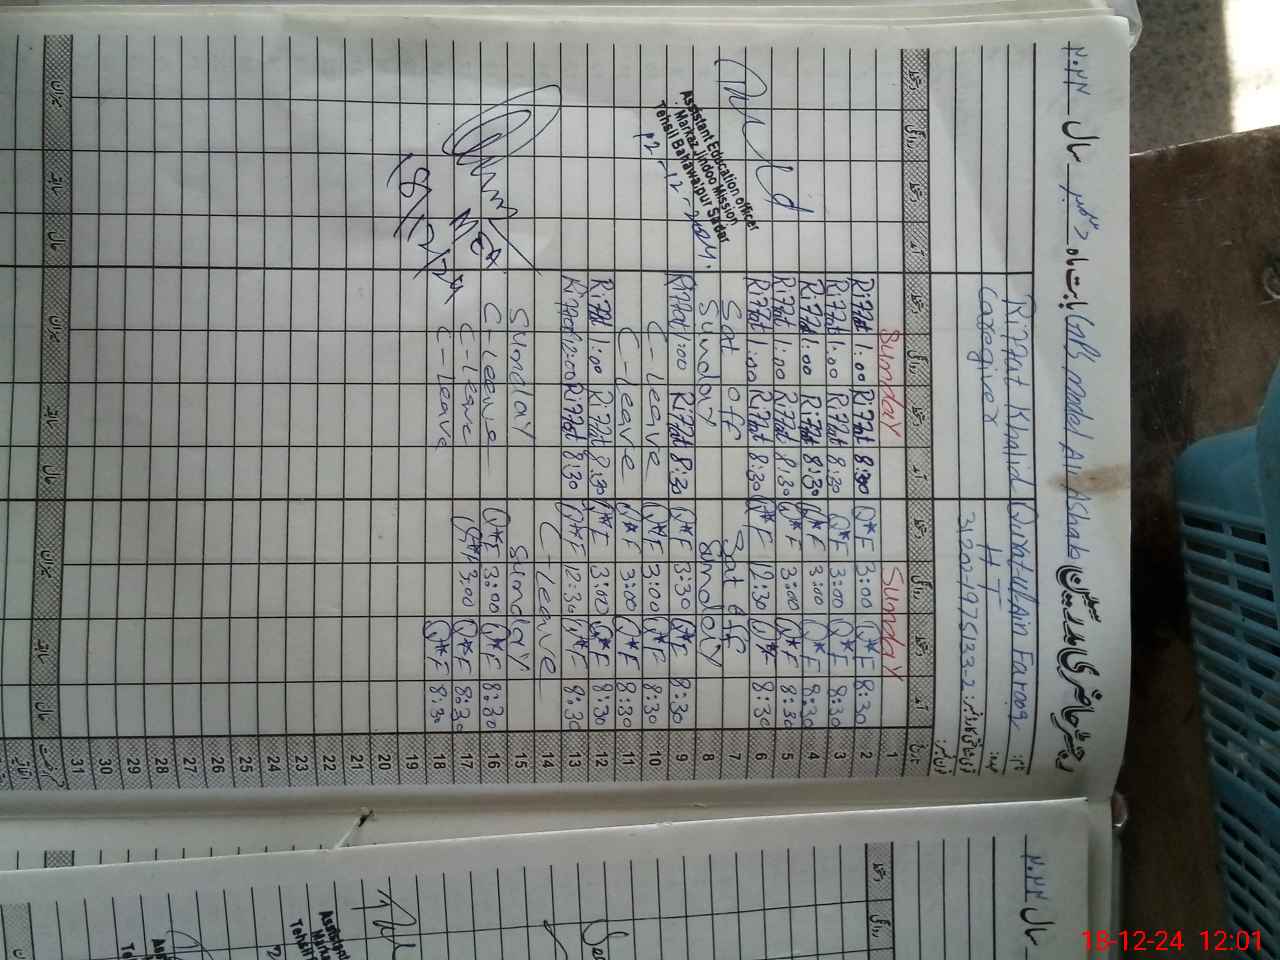 رجسٹر حاضری مدرسین GGPS Model Ali Ashab بابت ماہ دسمبر سال ۲۰۲۴
نام: Quratul Ain Farooq Riffat Khalid
عہدہ: H T Caregiver
شناختی کارڈ نمبر: 31202-1975133-2
تاریخ آمد دستخط روانگی دستخط آمد دستخط روانگی دستخط آمد دستخط روانگی دستخط
1 Sunday Sunday
2 8:30 Q*F 3:00 Q*F 8:30 Riffat 1:00 Riffat
3 8:30 Q*F 3:00 Q*F 8:30 Riffat 1:00 Riffat
4 8:30 Q*F 3:00 Q*F 8:30 Riffat 1:00 Riffat
5 8:30 Q*F 3:00 Q*F 8:30 Riffat 1:00 Riffat
6 8:30 Q*F 12:30 Q*F 8:30 Riffat 1:00 Riffat
7 Sat Off Sat off
8 Sunday Sunday
9 8:30 Q*F 3:30 Q*F 8:30 Riffat 1:00 Riffat
10 8:30 Q*F 3:00 Q*F C-Leave
11 8:30 Q*F 3:00 Q*F C-Leave
12 8:30 Q*F 3:00 Q*F 8:30 Riffat 1:00 Riffat
13 8:30 Q*F 12:30 Q*F 8:30 Riffat 12:00 Riffat
14 C-Leave
15 Sunday Sunday
16 8:30 Q*F 3:00 Q*F C-Leave
17 8:30 Q*F 3:00 Q*F C-Leave
18 8:30 Q*F C-Leave
19
20
21
22
23
24
25
26
27
28
29
30
31
Assistant Education officer
Markaz Jindoo Mission
Tehsil Bahawalpur Sadar
12-12-2024.
MEA
18/12/24
سال ۲۰۲۴
Assistant
Tehsil
18-12-24 12:01